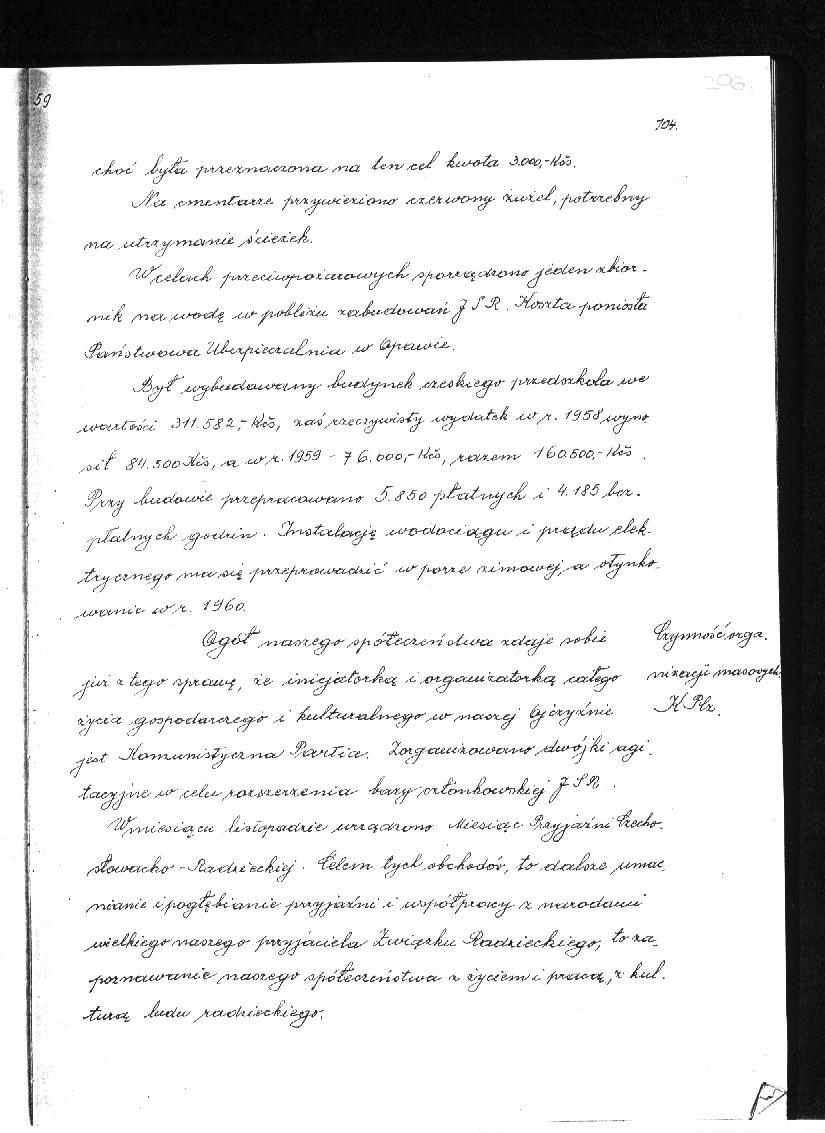 206.
59
104.
choć była przeznaczona na ten cel kwota 3.000,- Kčs.
Na cmentarze przywieziono czerwony żużel, potrzebny
na utrzymanie ścieżek.
W celach przeciwpożarowych sporządzono jeden zbior-
nik na wodę w pobliżu zabudowań JSR. Koszta poniosła
Państwowa Ubezpieczalnia w Opawie.
Był wybudowany budynek czeskiego przedszkola we
wartości 311.582,- Kčs, zaś rzeczywisty wydatek w r. 1958 wyno
sił 84.500 Kčs, a w r. 1959 - 76.000,- Kčs, razem 160.500,- Kčs.
Przy budowie przepracowano 5.850 płatnych i 4.185 bez-
płatnych godzin. Instalację wodociągu i prądu elek-
trycznego ma się przeprowadzić w porze zimowej, a otynko-
wanie w r. 1960.
Ogół naszego spółeczeństwa zdaje sobie
już z tego sprawę, że inicjatorką i organizatorką całego
życia gospodarczego i kulturalnego w naszej Ojczyźnie
jest Komunistyczna Partia. Zorganizowano dwójki agi-
tacyjne w celu rozszerzenia bazy członkowskiej JSR.
Czynność orga-
nizacji masowych
K Plz.
W miesiącu listopadzie urządzono Miesiąc Przyjaźni Czecho-
słowacko-Radzieckiej. Celem tych obchodów, to dalsze umac-
nianie i pogłębianie przyjaźni i współpracy z narodami
wielkiego naszego przyjaciela Związku Radzieckiego, to za-
poznawanie naszego spółeczeństwa z życiem i pracą, z kul-
turą ludu radzieckiego.